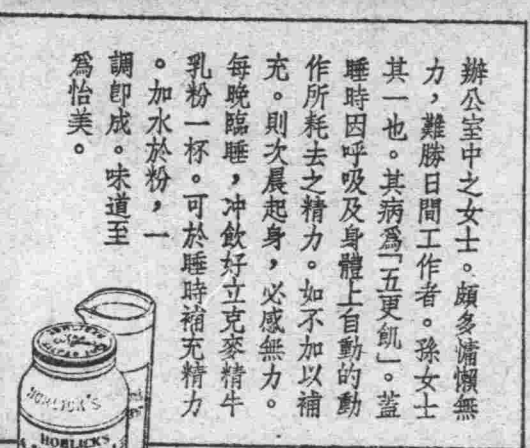 辦公室中之女士。頗多慵懶無
力，難勝日間工作者。孫女士
其一也。其病爲「五更飢」。蓋
睡時因呼吸及身體上自動的動
作所耗去之精力。如不加以補
充。則次晨起身，必感無力。
每晚臨睡，冲飲好立克麥精牛
乳粉一杯。可於睡時補充精力
。加水於粉，一
調卽成。味道至
爲怡美。
HORLICK'S
HORLICK'S
HORLICK'S